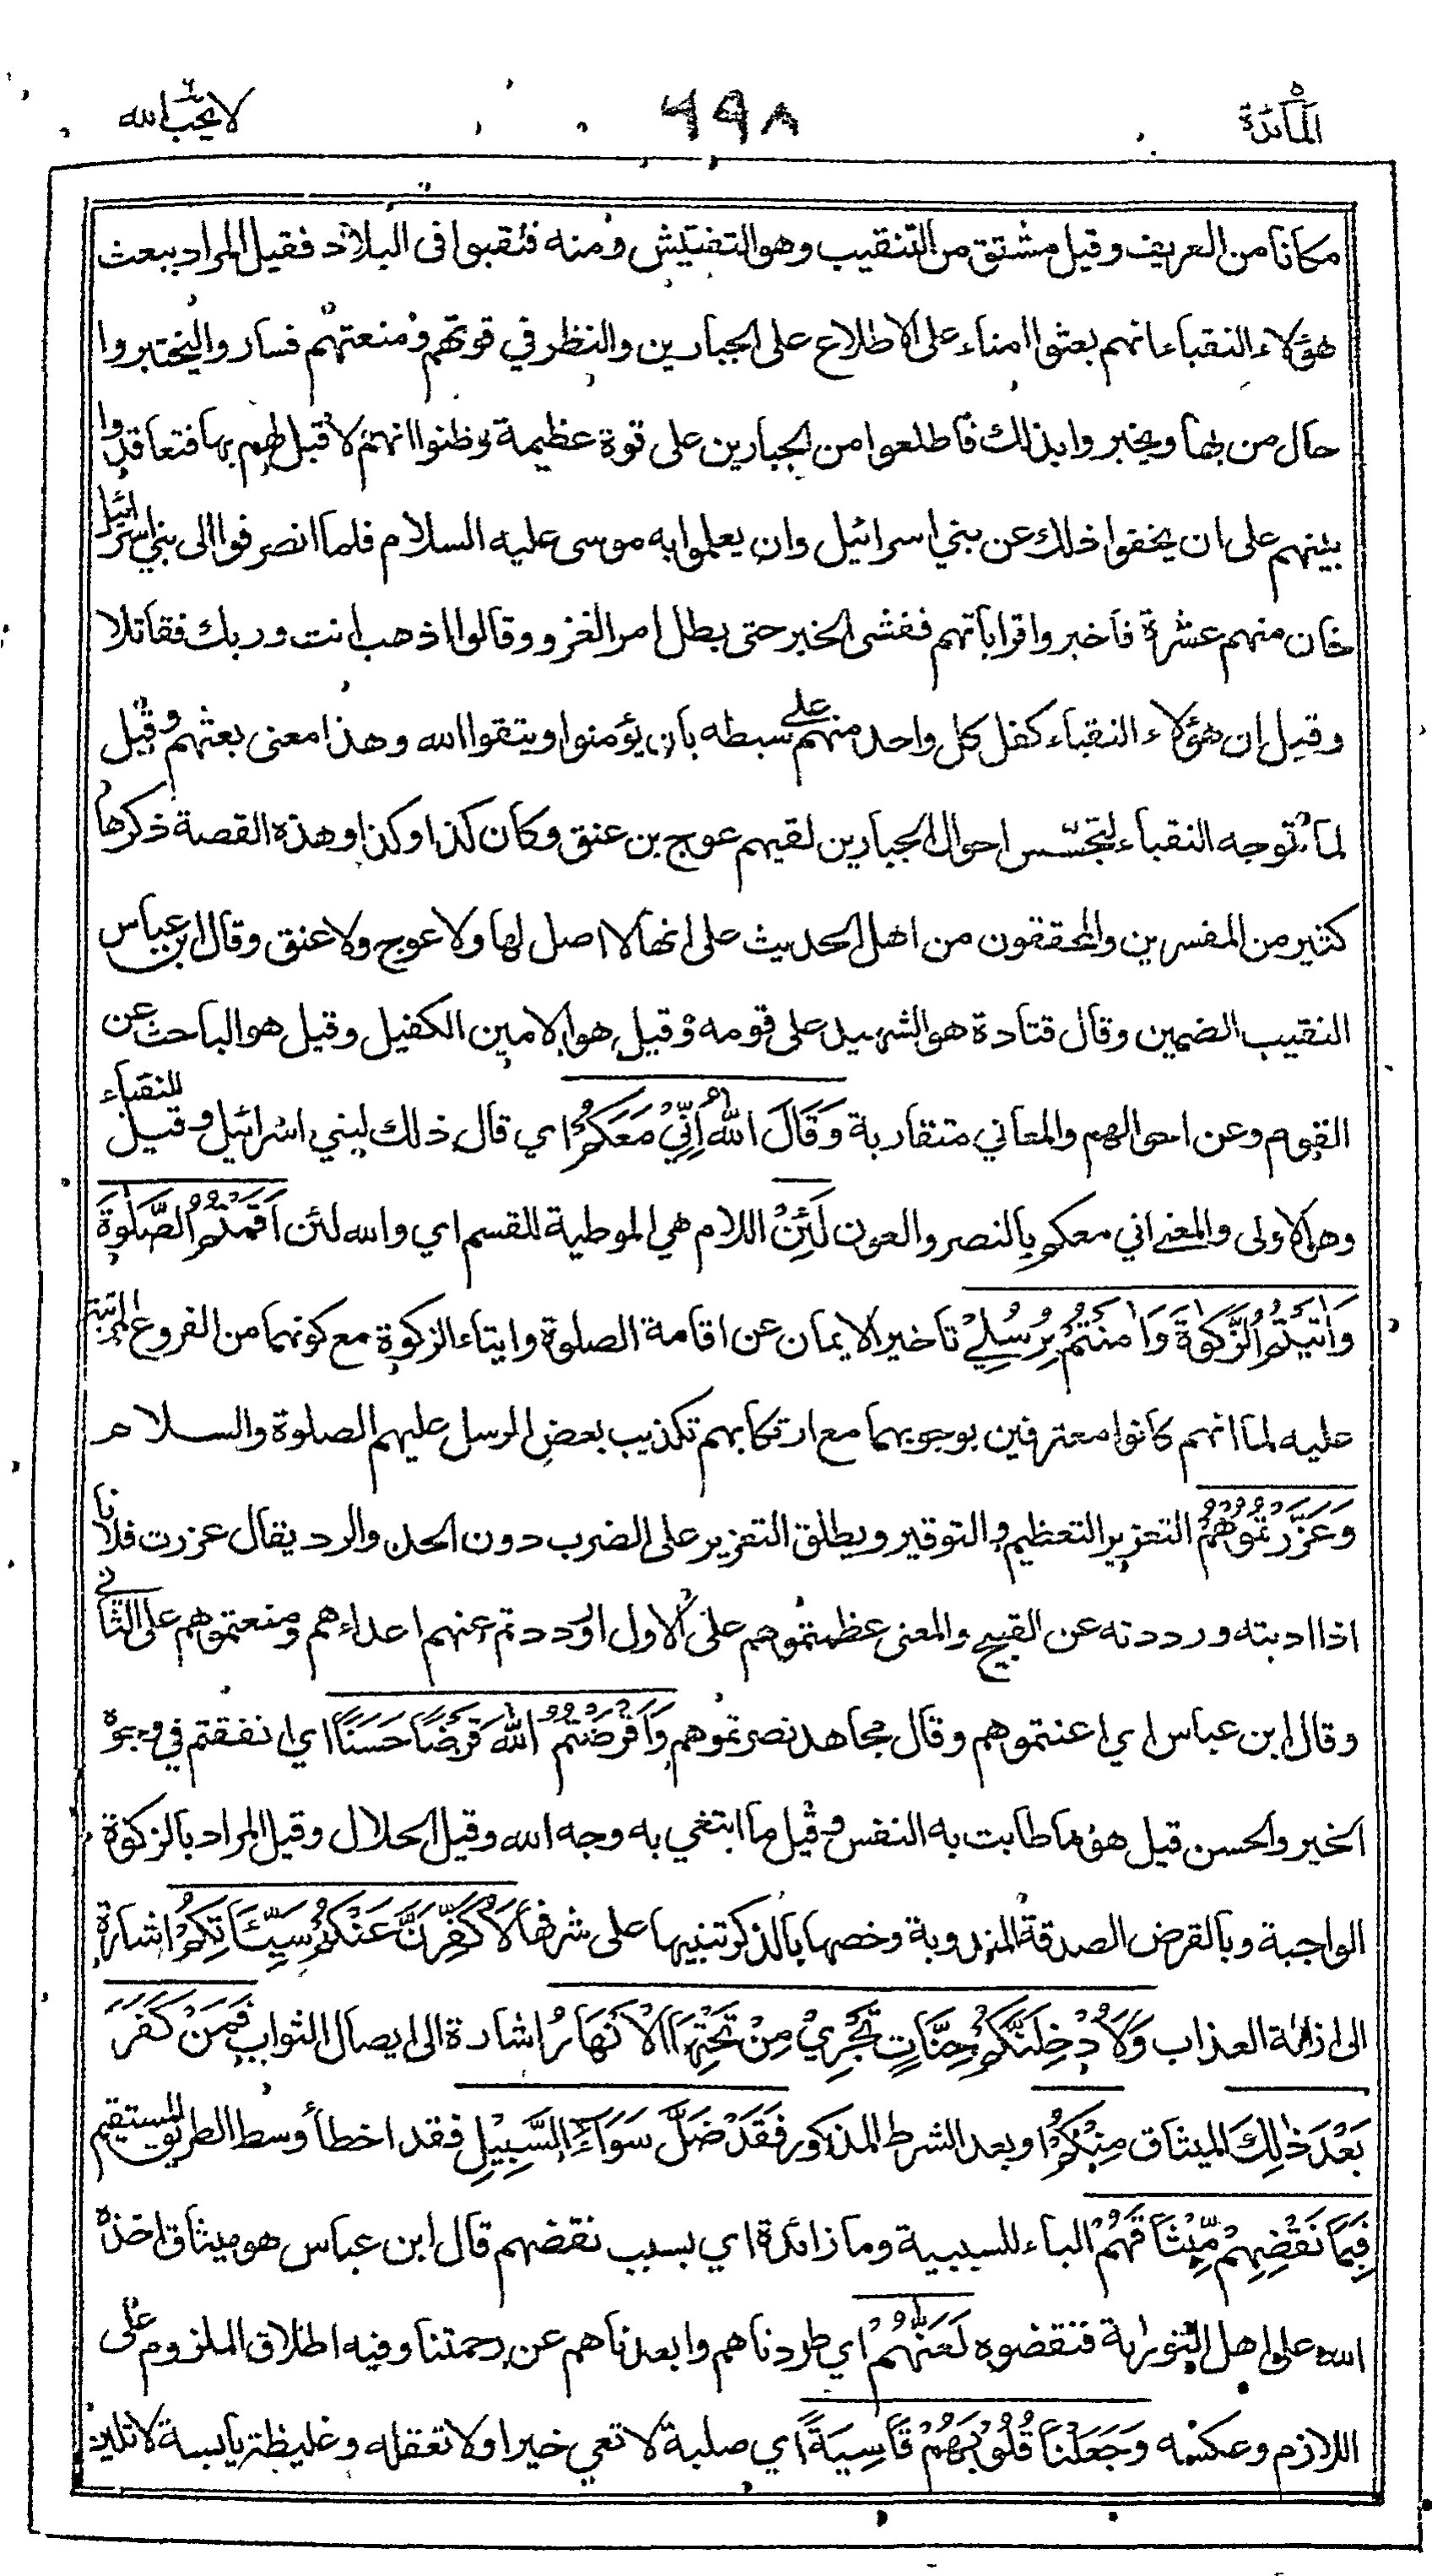 المآئدة ٦٩٨ لا يحب الله
مكانا من العريف وقيل مشتق من التنقيب وهو التفتيش ومنه فنقبوا فى البلاد فقيل المراد ببعث
هؤلاء النقباء انهم بعثوا امناء على الاطلاع على الجبارين والنظر في قوتهم ومنعتهم فساروا ليختبروا
حال من بها ويخبروا بذلك فاطلعوا من الجبارين على قوة عظيمة وظنوا انهم لا قبل لهم بها فتعاقدوا
بينهم على ان يخفوا ذلك عن بني اسرائيل وان يعلموا به موسى عليه السلام فلما انصرفوا الى بني اسرائيل
خان منهم عشرة فاخبروا قراباتهم ففشى الخبر حتى بطل امر الغزو وقالوا اذهب انت وربك فقاتلا
وقيل ان هؤلاء النقباء كفل كل واحد منهم على سبطه بان يؤمنوا ويتقوا الله وهذا معنى بعثهم وقيل
لما توجه النقباء لتجسّس احوال الجبارين لقيهم عوج بن عنق وكان كذا وكذا وهذه القصة ذكرها
كثير من المفسرين والمحققون من اهل الحديث على انها لا اصل لها ولا عوج ولا عنق وقال ابن عباس
النقيب الضمين وقال قتادة هو الشهيد على قومه وقيل هو الامين الكفيل وقيل هو الباحث عن
القوم وعن احوالهم والمعاني متقاربة وَقَالَ اللهُ اِنِّيْ مَعَكُمْ اي قال ذلك لبني اسرائيل وقيل للنقباء
وهو الاولى والمعنى اني معكم بالنصر والعون لَئِنْ اللام هي الموطية للقسم اي والله لئن اَقَمْتُمُ الصَّلٰوةَ
وَاٰتَيْتُمُ الزَّكٰوةَ وَاٰمَنْتُمْ بِرُسُلِيْ تاخير الايمان عن اقامة الصلوة وايتاء الزكوة مع كونهما من الفروع المرتبة
عليه لما انهم كانوا معترفين بوجوبهما مع ارتكابهم تكذيب بعض الرسل عليهم الصلوة والسلام
وَعَزَّرْتُمُوْهُمْ التعزير التعظيم والتوقير ويطلق التعزير على الضرب دون الحد والرد يقال عزرت فلانا
اذا ادبته ورددته عن القبيح والمعنى عظمتموهم على الاول او رددتم عنهم اعداءهم ومنعتموهم على الثاني
وقال ابن عباس اي اعنتموهم وقال مجاهد نصرتموهم وَاَقْرَضْتُمُ اللهَ قَرْضًا حَسَنًا اي انفقتم في وجوه
الخير والحسن قيل هو ما طابت به النفس وقيل ما ابتغي به وجه الله وقيل الحلال وقيل المراد بالزكوة
الواجبة وبالقرض الصدقة المندوبة وخصها بالذكر تنبيها على شرفها لَاُكَفِّرَنَّ عَنْكُمْ سَيِّئَاتِكُمْ اشارة
الى ازالة العذاب وَلَاُدْخِلَنَّكُمْ جَنَّاتٍ تَجْرِيْ مِنْ تَحْتِهَا الْاَنْهَارُ اشارة الى ايصال الثواب فَمَنْ كَفَرَ
بَعْدَ ذٰلِكَ الميثاق مِنْكُمْ او بعد الشرط المذكور فَقَدْ ضَلَّ سَوَآءَ السَّبِيْلِ فقد اخطأ وسط الطريق المستقيم
فَبِمَا نَقْضِهِمْ مِّيْثَاقَهُمْ الباء للسببية وما زائدة اي بسبب نقضهم قال ابن عباس هو ميثاق اخذه
الله على اهل التوراية فنقضوه لَعَنّٰهُمْ اي طردناهم وابعدناهم عن رحمتنا وفيه اطلاق الملزوم على
اللازم وعكسه وَجَعَلْنَا قُلُوْبَهُمْ قَاسِيَةً اي صلبة لا تعي خيرا ولا تعقله وغليظة يابسة لا تلين